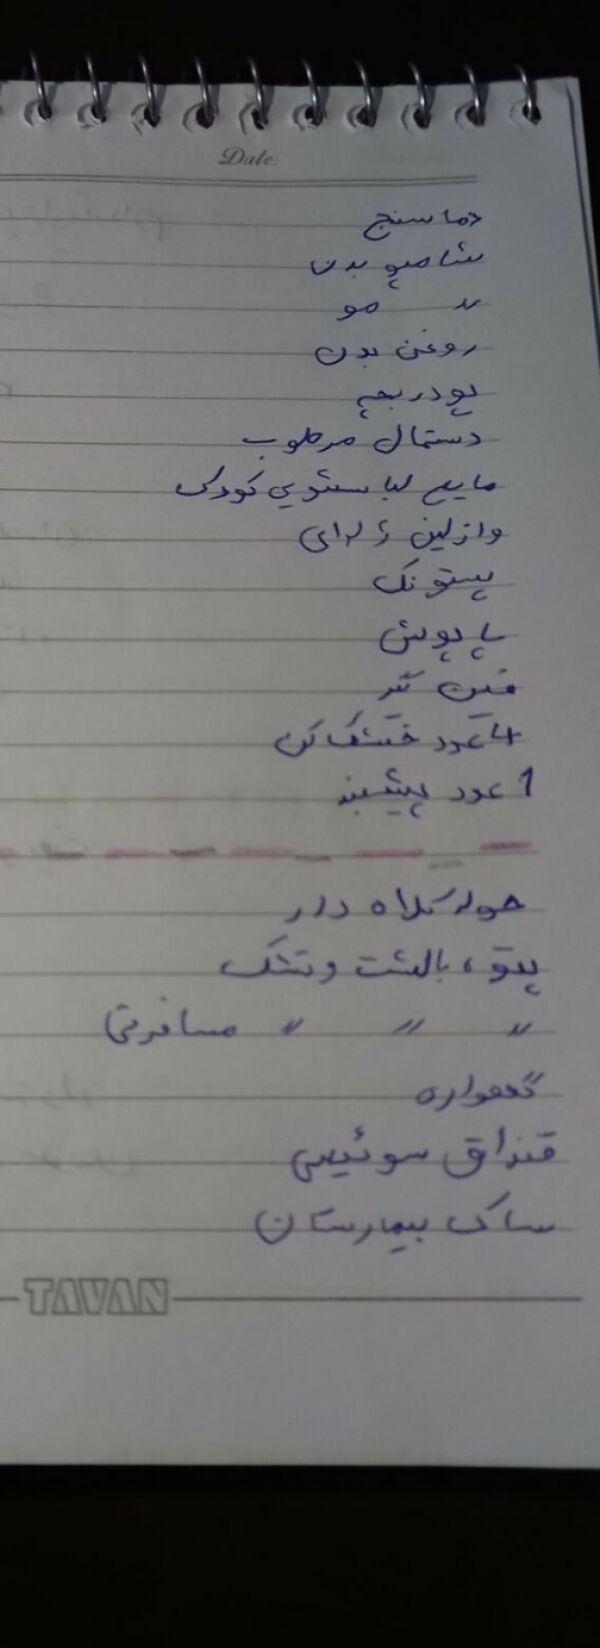 Date:
دماسنج
شامپو بدن
〃 مو
روغن بدن
پودر بچه
دستمال مرطوب
مایع لباسشویی کودک
وازلین ژله‌ای
پستونک
پاپوش
فین گیر
4 عدد خشک کن
1 عدد پیشبند
حوله کلاه دار
پتو، بالشت و تشک
〃 〃 〃 مسافرتی
گهواره
قنداق سوئیسی
ساک بیمارستان
TAVAN